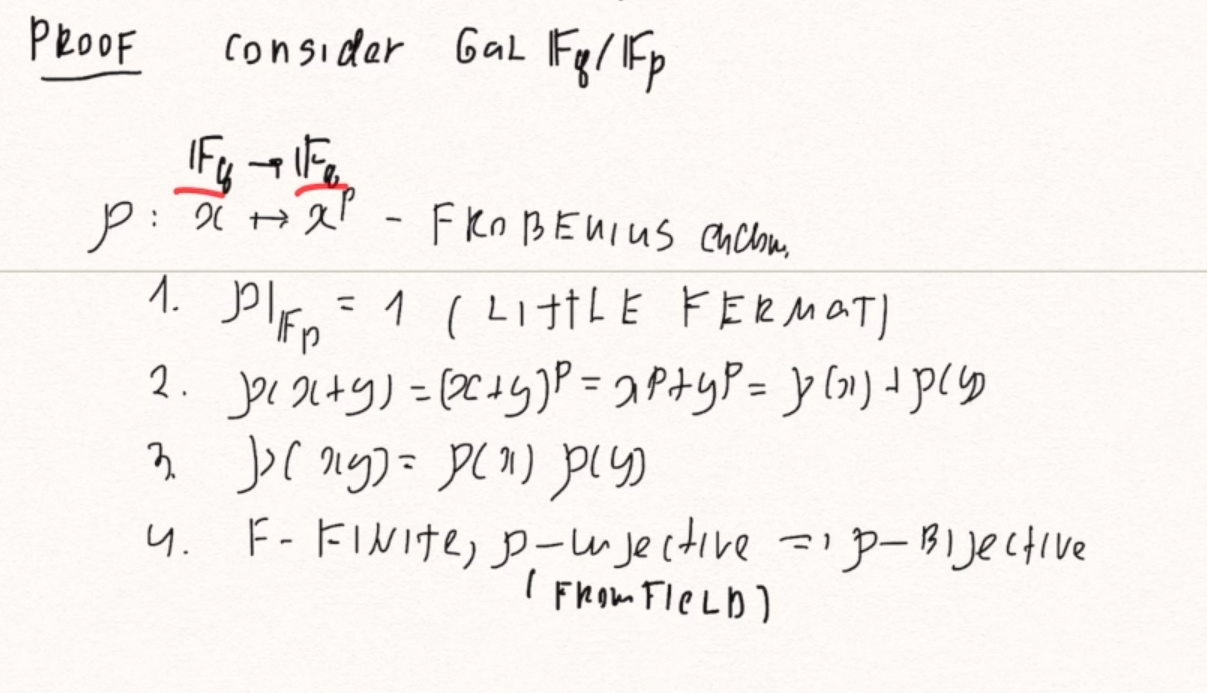 PROOF consider Gal 𝔽q/𝔽p
𝔽q → 𝔽q
ρ: x ↦ x^p - FROBENIUS
1. ρ|𝔽p = 1 (LITTLE FERMAT)
2. ρ(x+y) = (x+y)^p = x^p+y^p = ρ(x)+ρ(y)
3. ρ(xy) = ρ(x) ρ(y)
4. F- FINITE, ρ-injective => ρ-Bijective
(FROM FIELD)